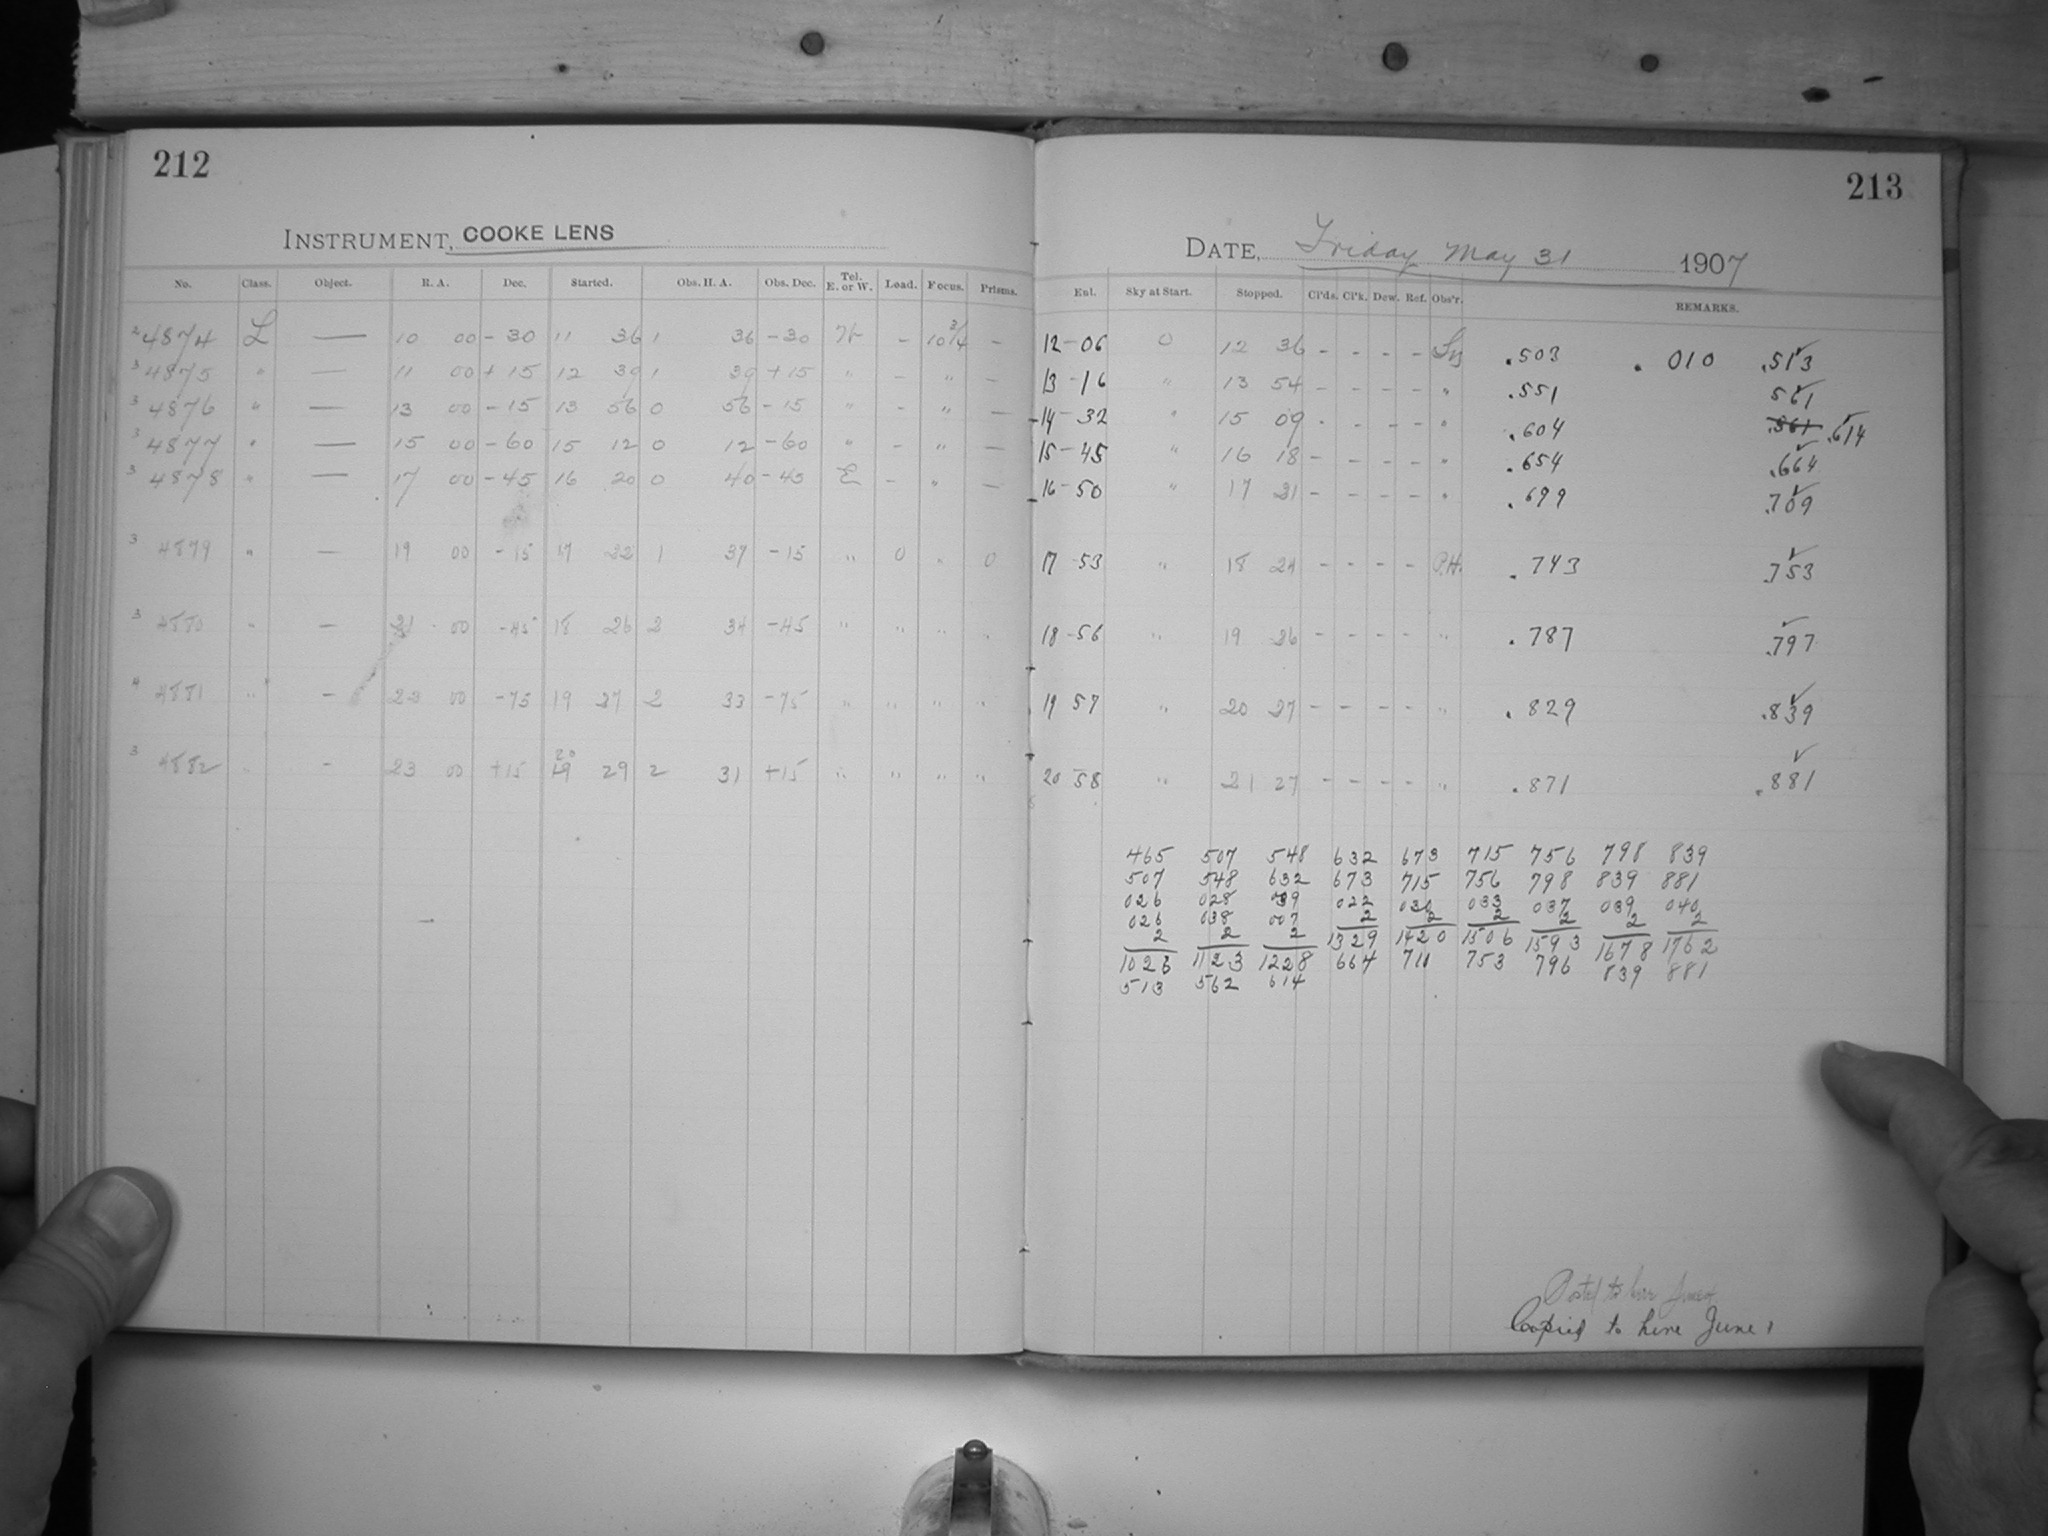 212
INSTRUMENT, COOKE LENS
No. Class. Object. R. A. Dec. Started. Obs. H. A. Obs. Dec. Tel. E. or W. Load. Focus. Prisms.
2 4874 L — 10 00 - 30 11 36 1 36 - 30 W - 10 3/4 -
3 4875 " — 11 00 + 15 12 39 1 39 + 15 " - " -
3 4876 " — 13 00 - 15 13 56 0 56 - 15 " - " -
3 4877 " — 15 00 - 60 15 12 0 12 - 60 " - " -
3 4878 " — 17 00 - 45 16 20 0 40 - 45 E - " -
3 4879 " — 19 00 - 15 17 22 1 37 - 15 " 0 " 0
3 4880 " — 21 00 - 45 18 26 2 34 - 45 " " " "
4 4881 " - 23 00 - 75 19 27 2 33 - 75 " " " "
3 4882 " - 23 00 + 15 20 19 29 2 31 + 15 " " " "
213
DATE, Friday May 31 1907
Sky at Start. Stopped. Cl'ds. Cl'k. Dew. Ref. Obs'r. REMARKS.
12-06 0 12 36 - - - - .503 . 010 .513
13-16 " 13 54 - - - - " .551 561
14-32 " 15 09 - - - - " .604 .561 .614
15-45 " 16 18 - - - - " .654 .664
16-50 " 17 21 - - - - " .699 .709
17-53 " 18 24 - - - - P.H. .743 .753
18-56 " 19 26 - - - - " .787 .797
19 57 " 20 27 - - - - " .829 .839
20-58 " 21 27 - - - - " .871 .881
465 507 548 632 673 715 756 798 839
507 548 632 673 715 756 798 839 881
026 028 039 022 030 033 037 039 040
026 038 007 2 2 2 2 2 2
2 2 2 1329 1420 1506 1593 1678 1762
1026 1123 1228 664 711 753 796 839 881
513 562 614
Posted to here June
Copied to here June 1